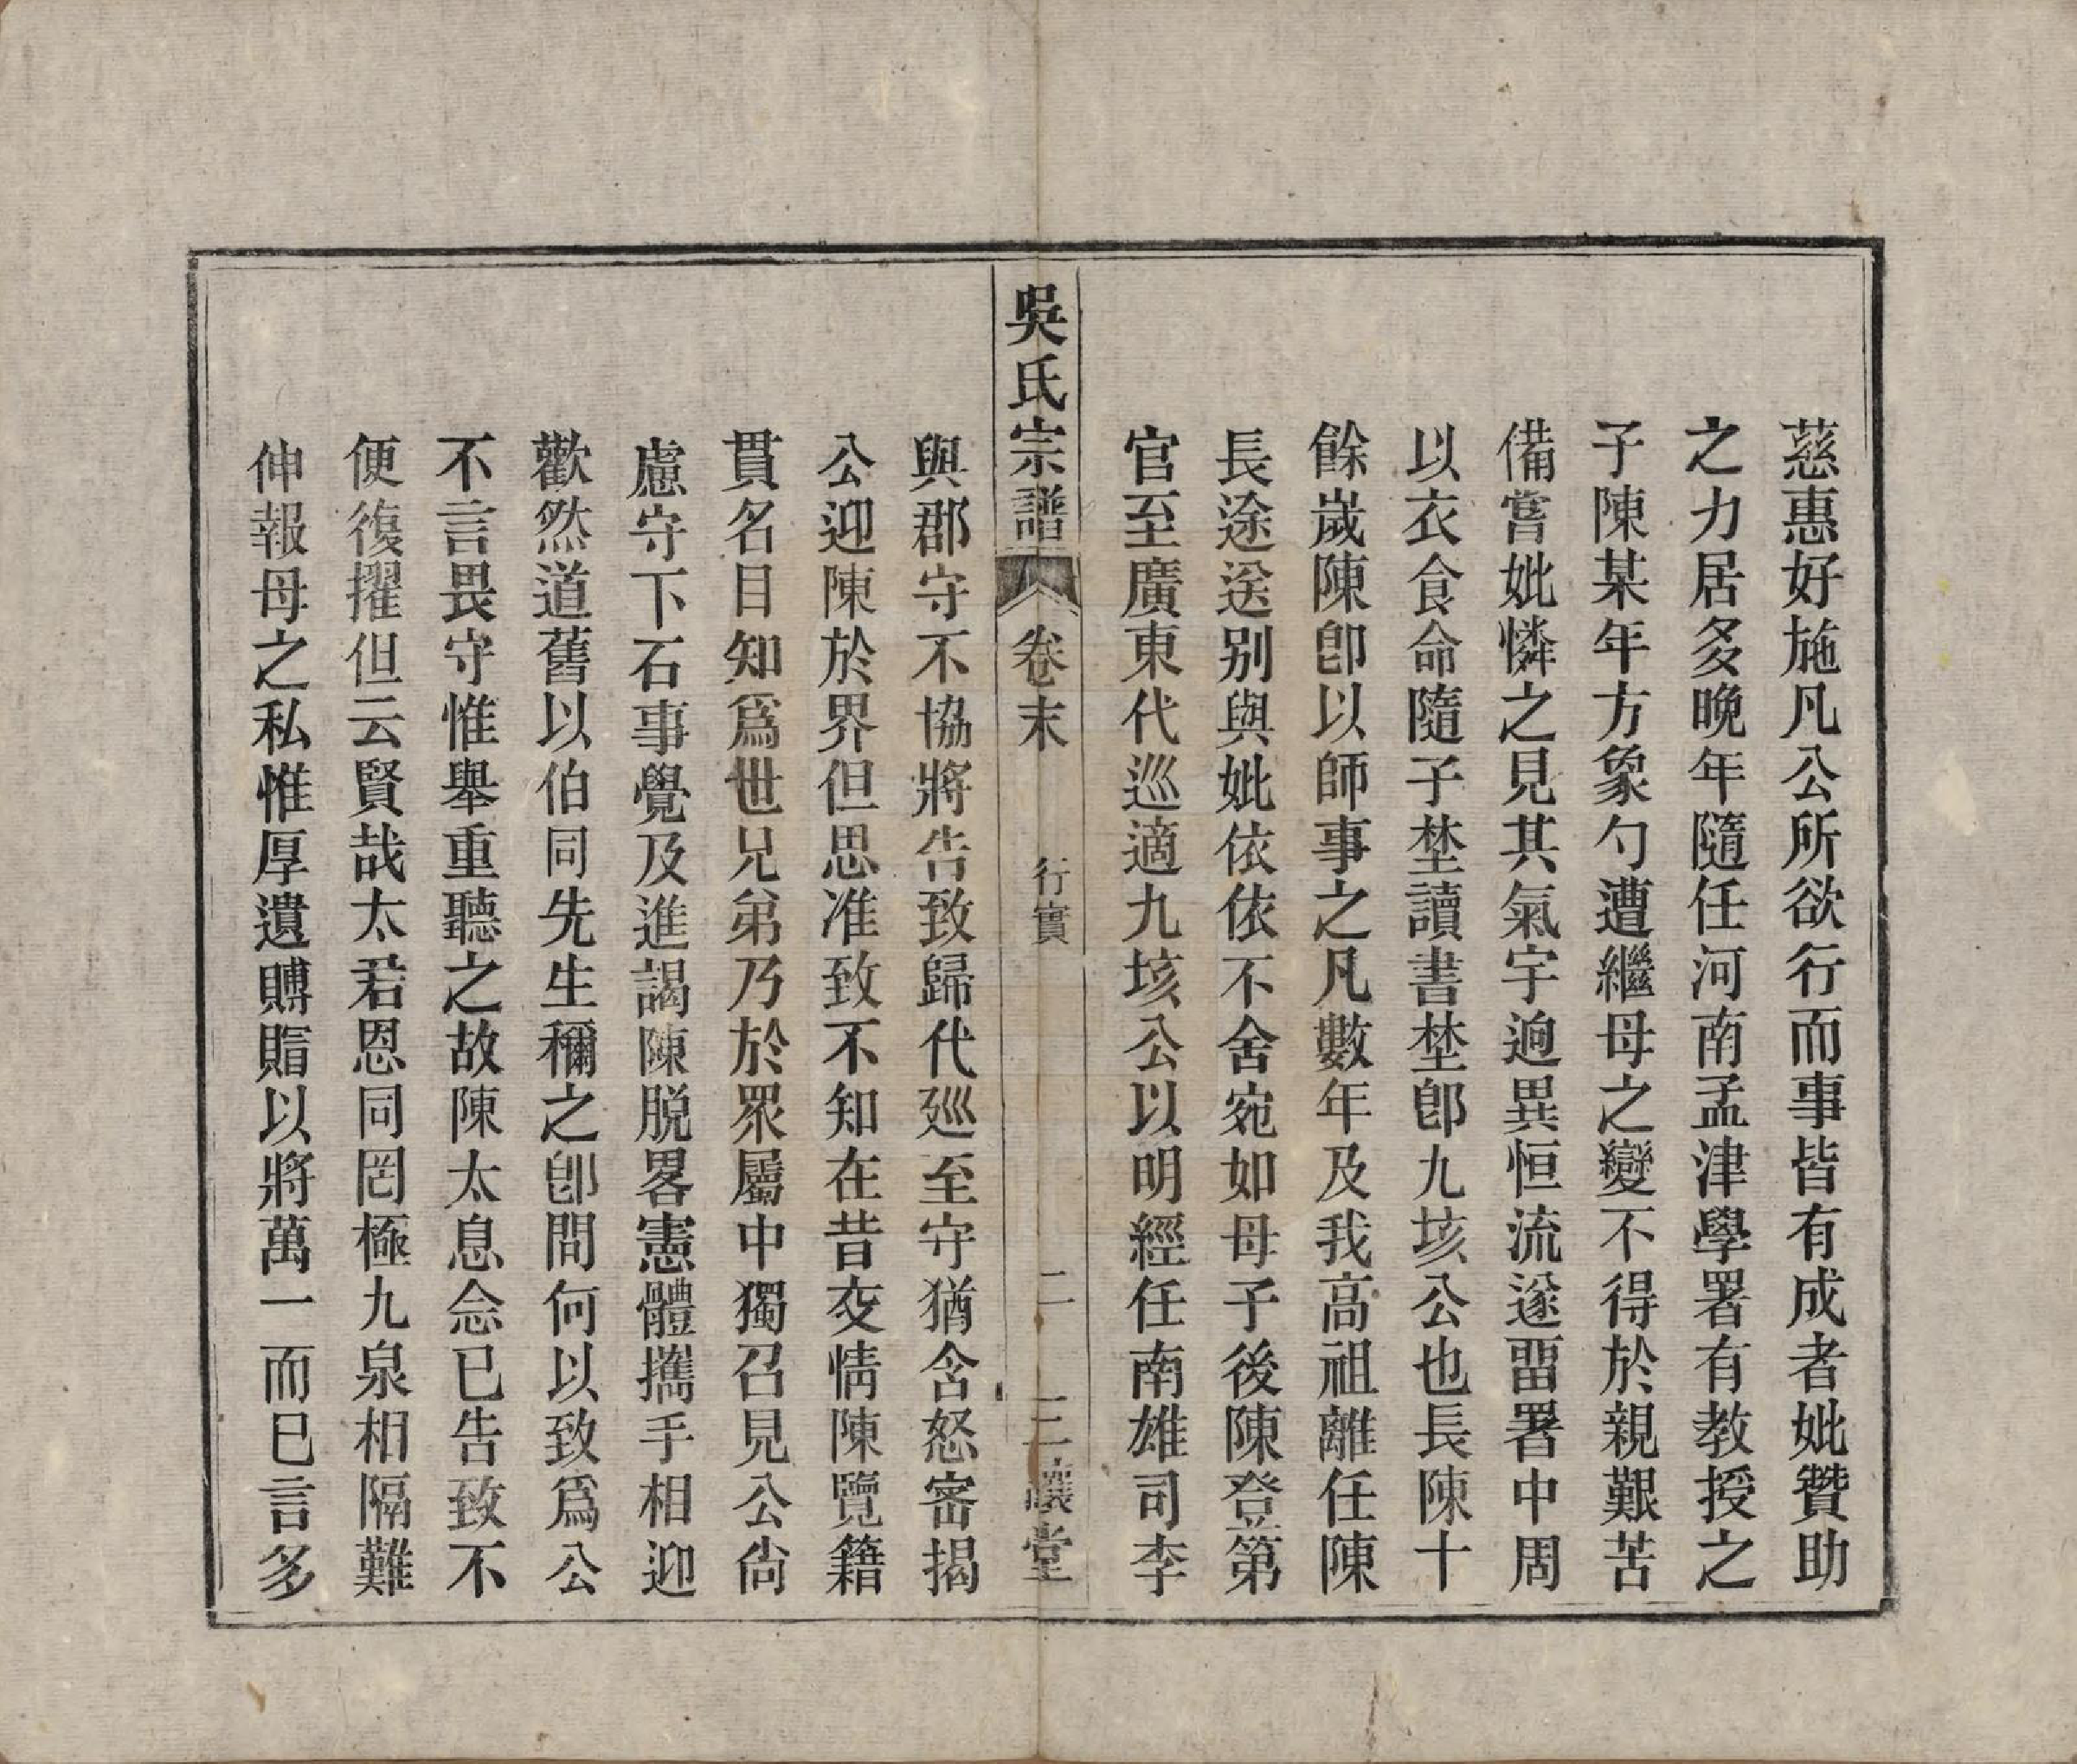 慈惠好施凡公所欲行而事皆有成者妣贊助
之力居多晚年隨任河南孟津學署有教授之
子陳某年方象勺遭繼母之變不得於親艱苦
備嘗妣憐之見其氣宇逈異恒流遂畱署中周
以衣食命隨子埜讀書埜卽九垓公也長陳十
餘歲陳卽以師事之凡數年及我高祖離任陳
長途送别與妣依依不舍宛如母子後陳登第
官至廣東代巡適九垓公以明經任南雄司李
吳氏宗譜 卷末 行實 二 三讓堂
與郡守不協將告致歸代廵至守猶含怒密揭
公迎陳於界但思准致不知在昔交情陳覽籍
貫名目知爲世兄弟乃於眾屬中獨召見公尙
慮守下石事覺及進謁陳脱畧憲體攜手相迎
歡然道舊以伯同先生稱之卽問何以致爲公
不言畏守惟舉重聽之故陳太息念已告致不
便復擢但云賢哉太君恩同罔極九泉相隔難
伸報母之私惟厚遺賻賵以將萬一而巳言多